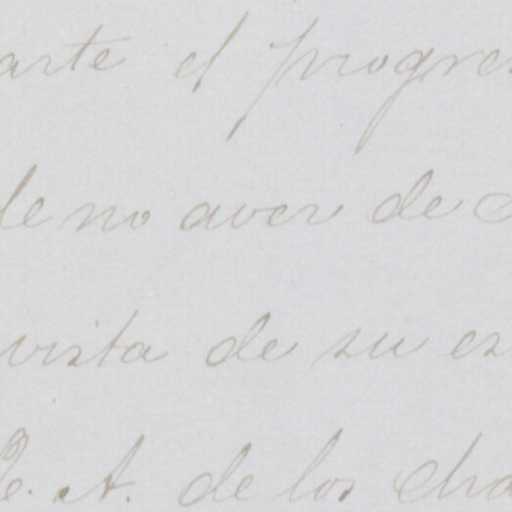 arte el progre
de no aver de
vista de su es
E. A. de los cha